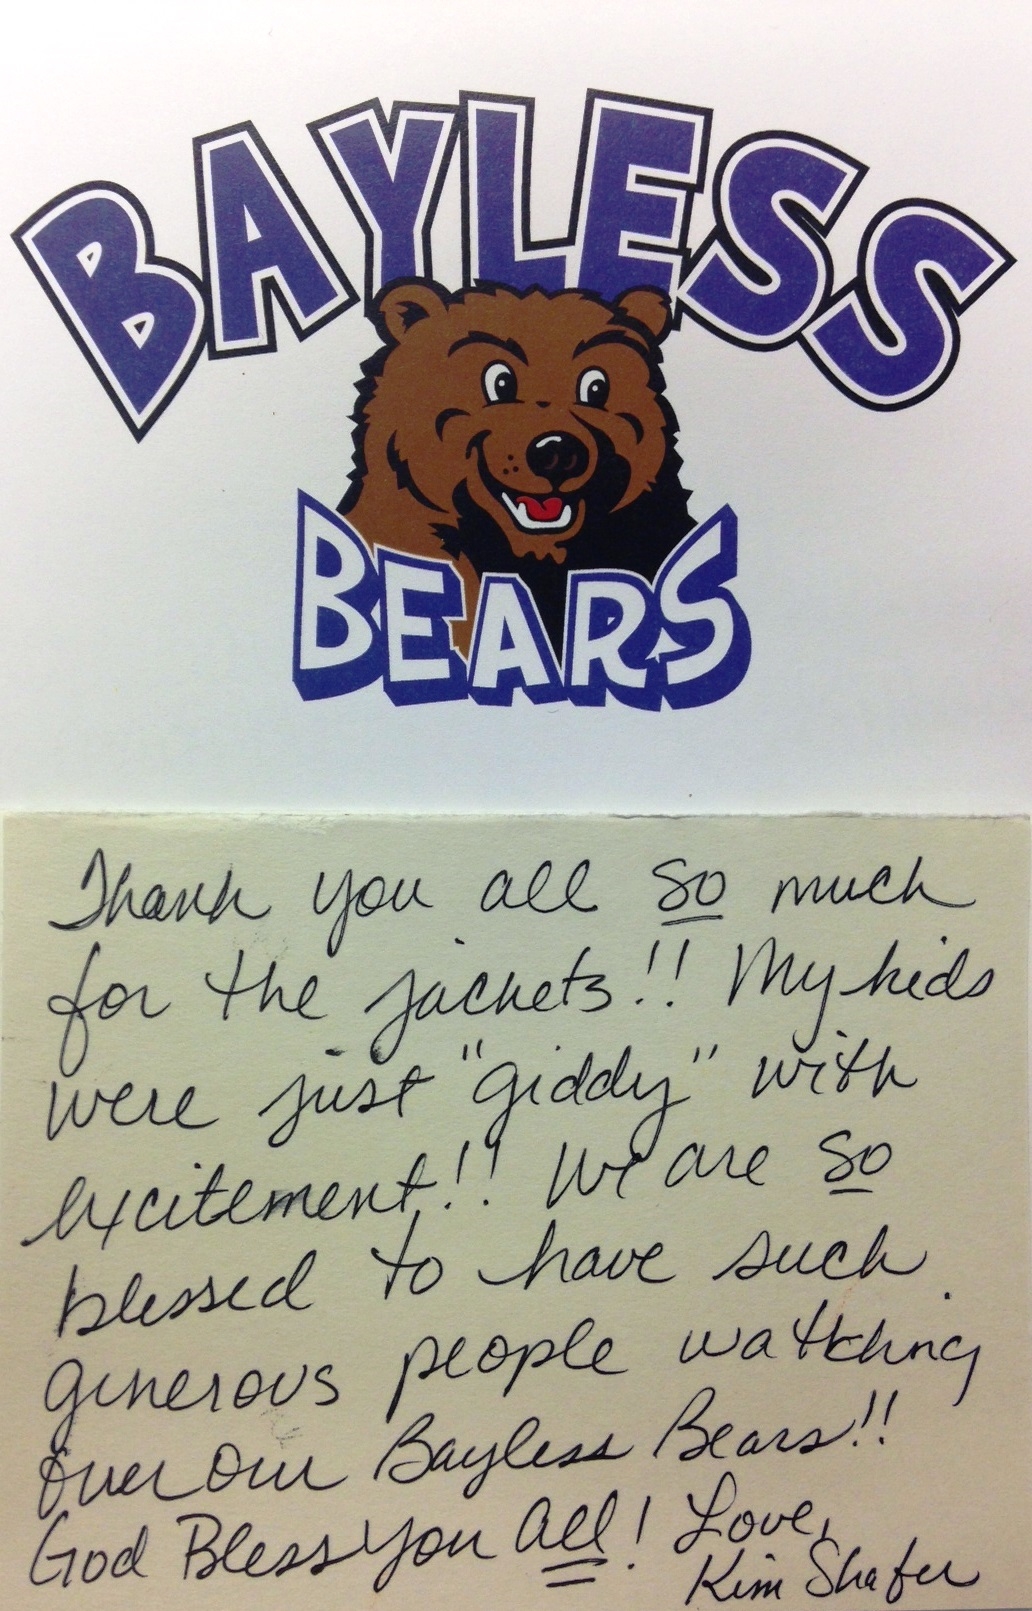 BAYLESS
BEARS
Thank you all so much
for the jackets!! My kids
were just "giddy" with
excitement!! We are so
blessed to have such
generous people watching
over our Bayless Bears!!
God Bless you all! Love,
Kim Shafer